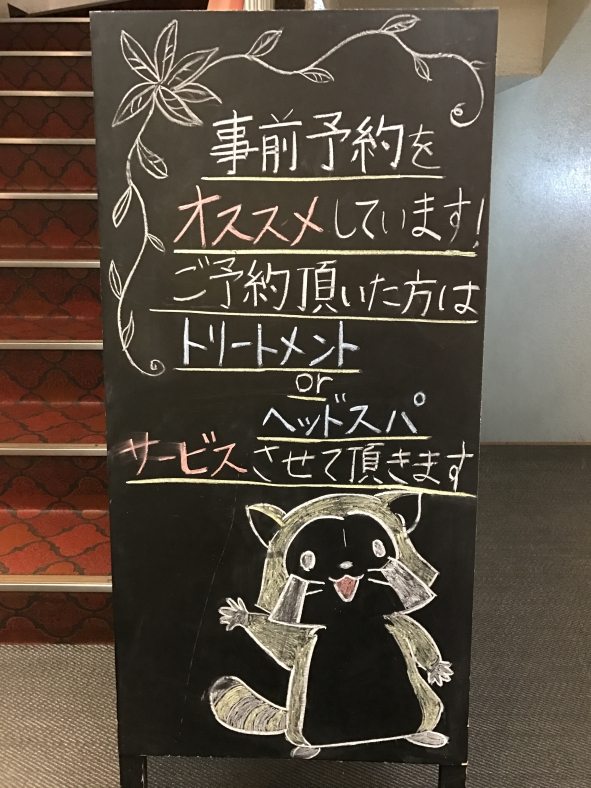 事前予約を
オススメしています!
ご予約頂いた方は
トリートメント
or
ヘッドスパ
サービスさせて頂きます